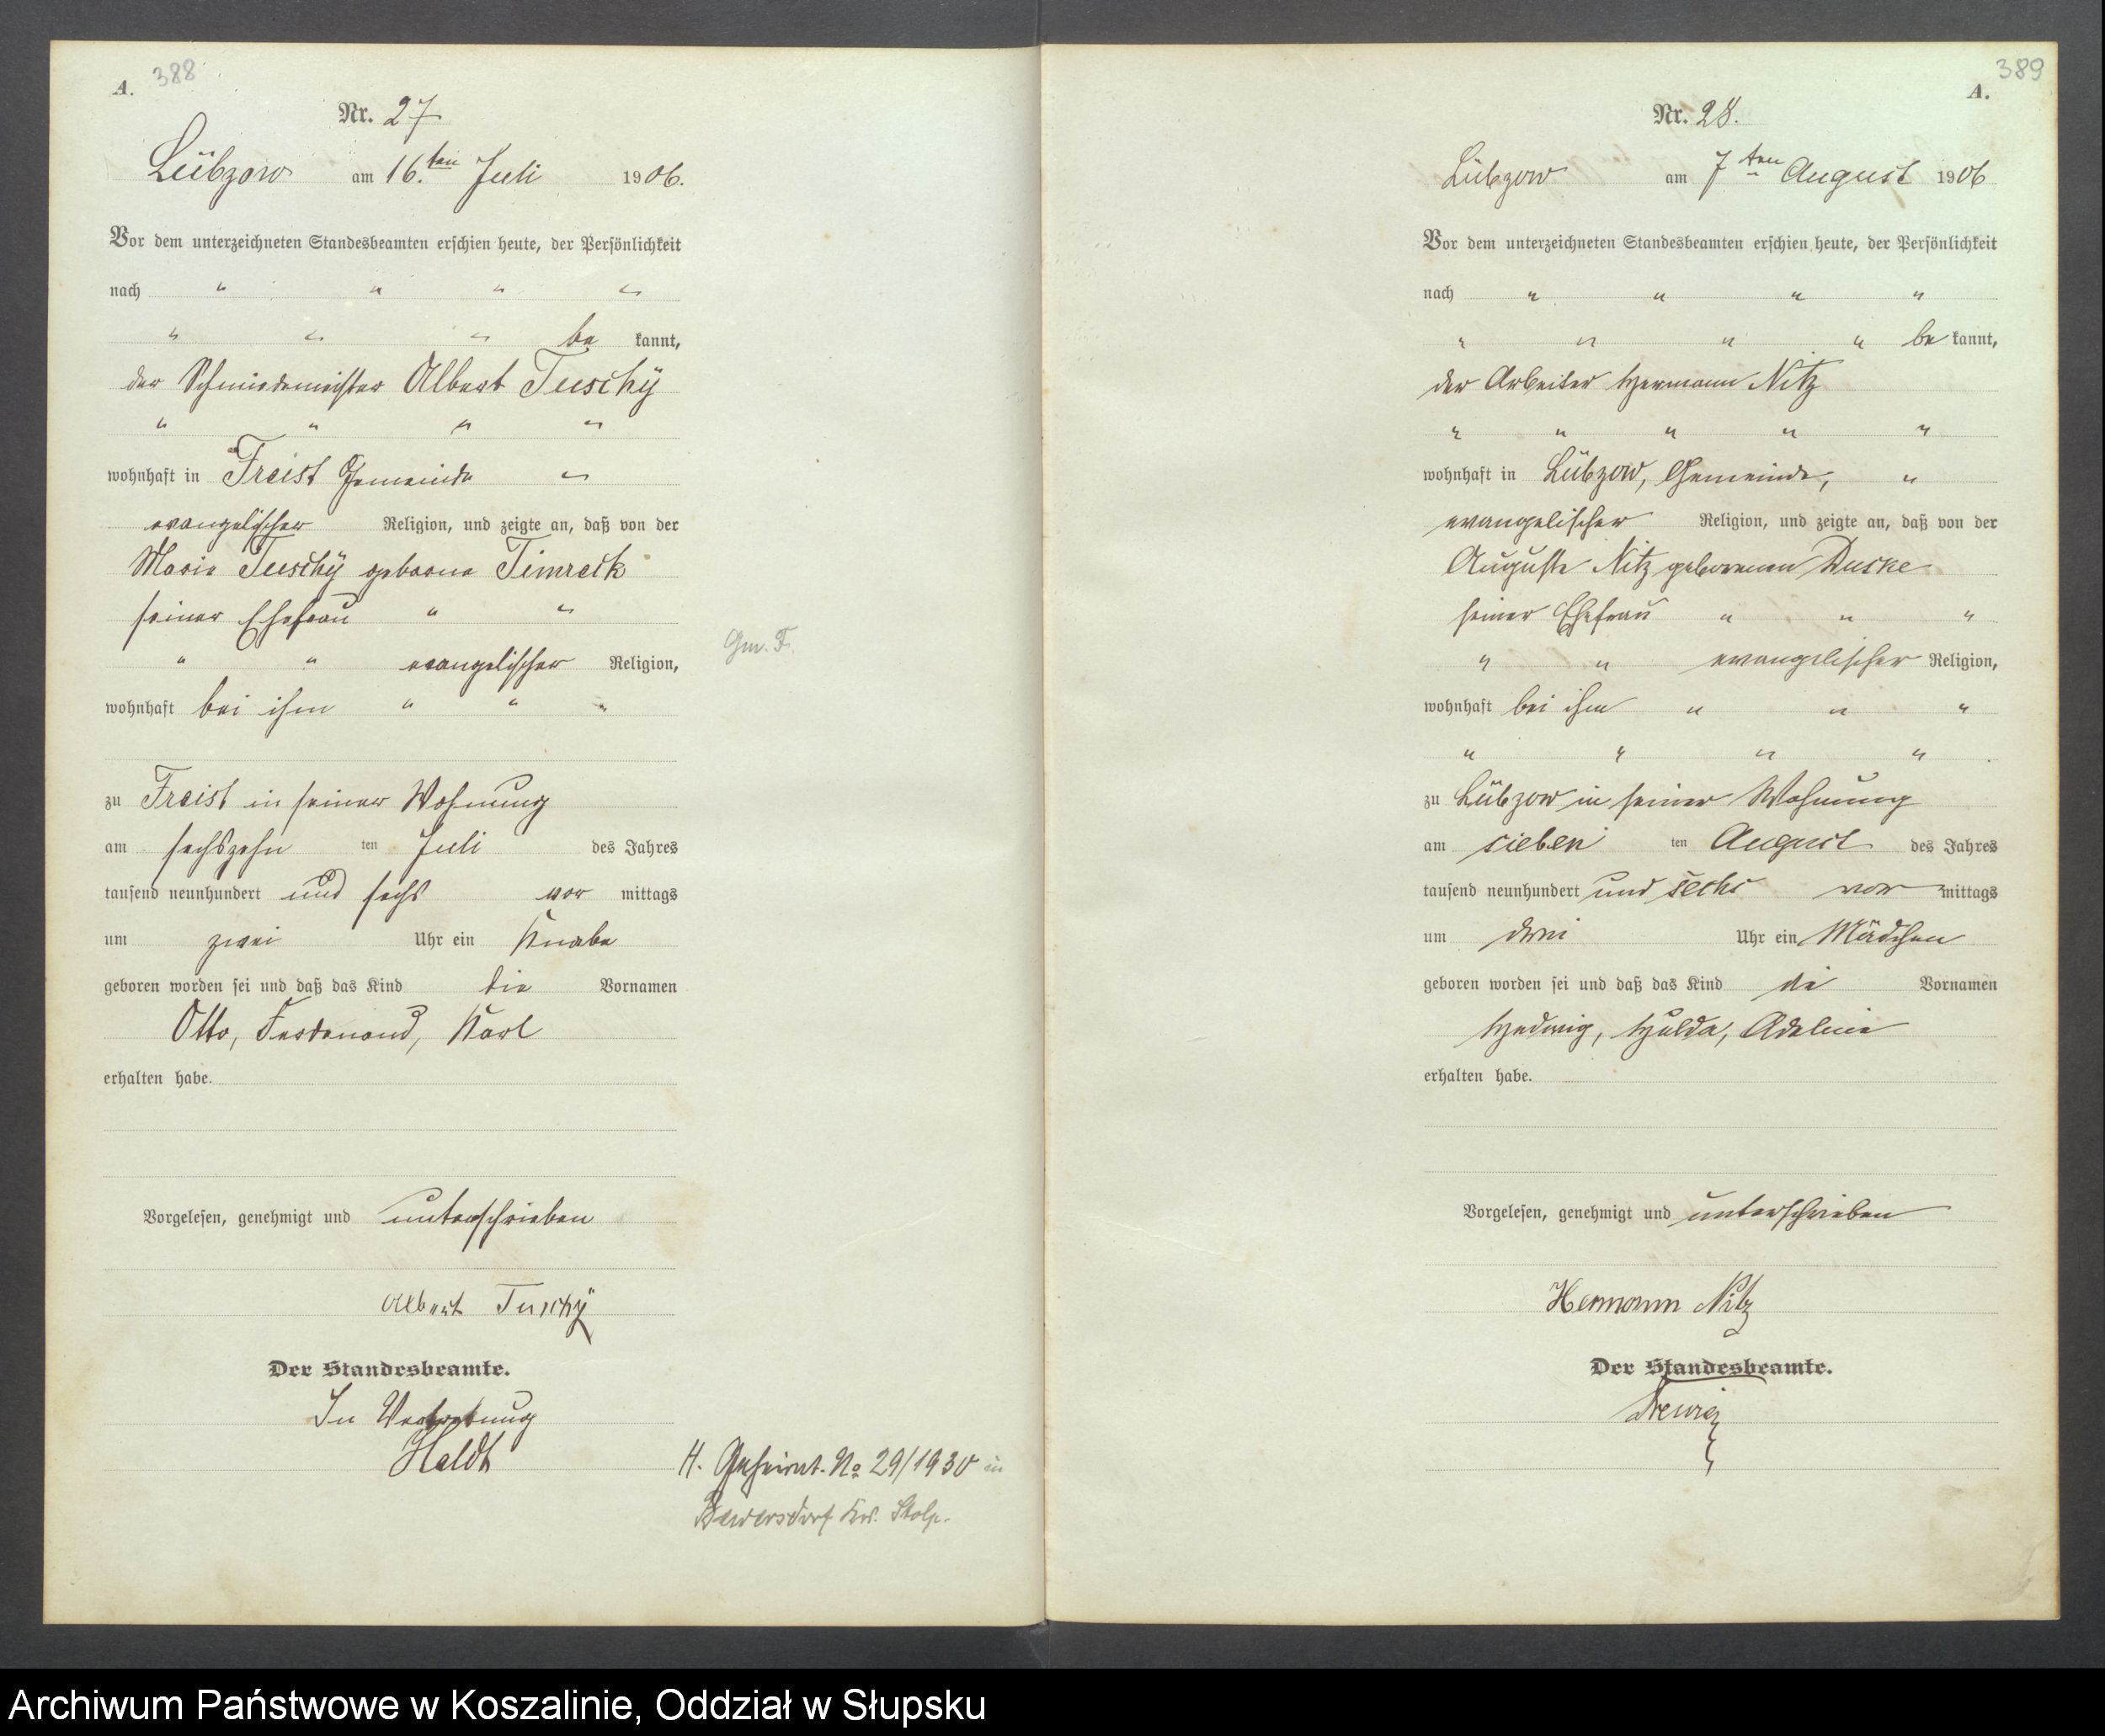 A. 388
Nr. 27
Lübzow am 16.ten Juli 1906.
Vor dem unterzeichneten Standesbeamten erschien heute, der Persönlichkeit
nach " " " "
" " " be kannt,
der Schmiedemeister Albert Tuschÿ
" " " "
wohnhaft in Freist Gemeinde "
evangelischer Religion, und zeigte an, daß von der
Marie Tuschÿ geborene Timreck
seiner Ehefrau " "
" " evangelischer Religion,
wohnhaft bei ihm " " "
zu Freist in seiner Wohnung
am sechszehn ten Juli des Jahres
tausend neunhundert und sechs vor mittags
um zwei Uhr ein Knabe
geboren worden sei und daß das Kind die Vornamen
Otto, Ferdenand, Karl
erhalten habe.
Vorgelesen, genehmigt und unterschrieben
Albert Tuschÿ
Der Standesbeamte.
In Vertretung
Heldt
Gm. F.
H. Geheirat. No 29/1930 in
Bewersdorf Krs. Stolp.
389
A.
Nr. 28.
Lübzow am 7ten August 1906
Vor dem unterzeichneten Standesbeamten erschien heute, der Persönlichkeit
nach " " " "
" " " " be kannt,
der Arbeiter Hermann Nitz
" " " " "
wohnhaft in Lübzow, Gemeinde, "
evangelischer Religion, und zeigte an, daß von der
Auguste Nitz geborenen Duske
seiner Ehefrau " " "
" " evangelischer Religion,
wohnhaft bei ihm " " "
" " " "
zu Lübzow in seiner Wohnung
am sieben ten August des Jahres
tausend neunhundert und sechs vor mittags
um drei Uhr ein Mädchen
geboren worden sei und daß das Kind die Vornamen
Hedwig, Hulda, Adeline
erhalten habe.
Vorgelesen, genehmigt und unterschrieben
Hermann Nitz
Der Standesbeamte.
Archiwum Państwowe w Koszalinie, Oddział w Słupsku